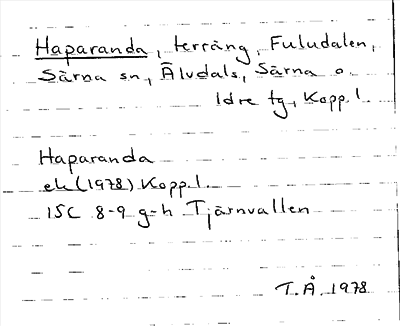 Haparanda, terräng, Fuludalen,
Särna sn, Älvdals, Särna o.
Idre tg, Kopp.l.
Haparanda
ek (1978) Kopp.l.
15C 8-9 g-h Tjärnvallen
T.Å. 1978